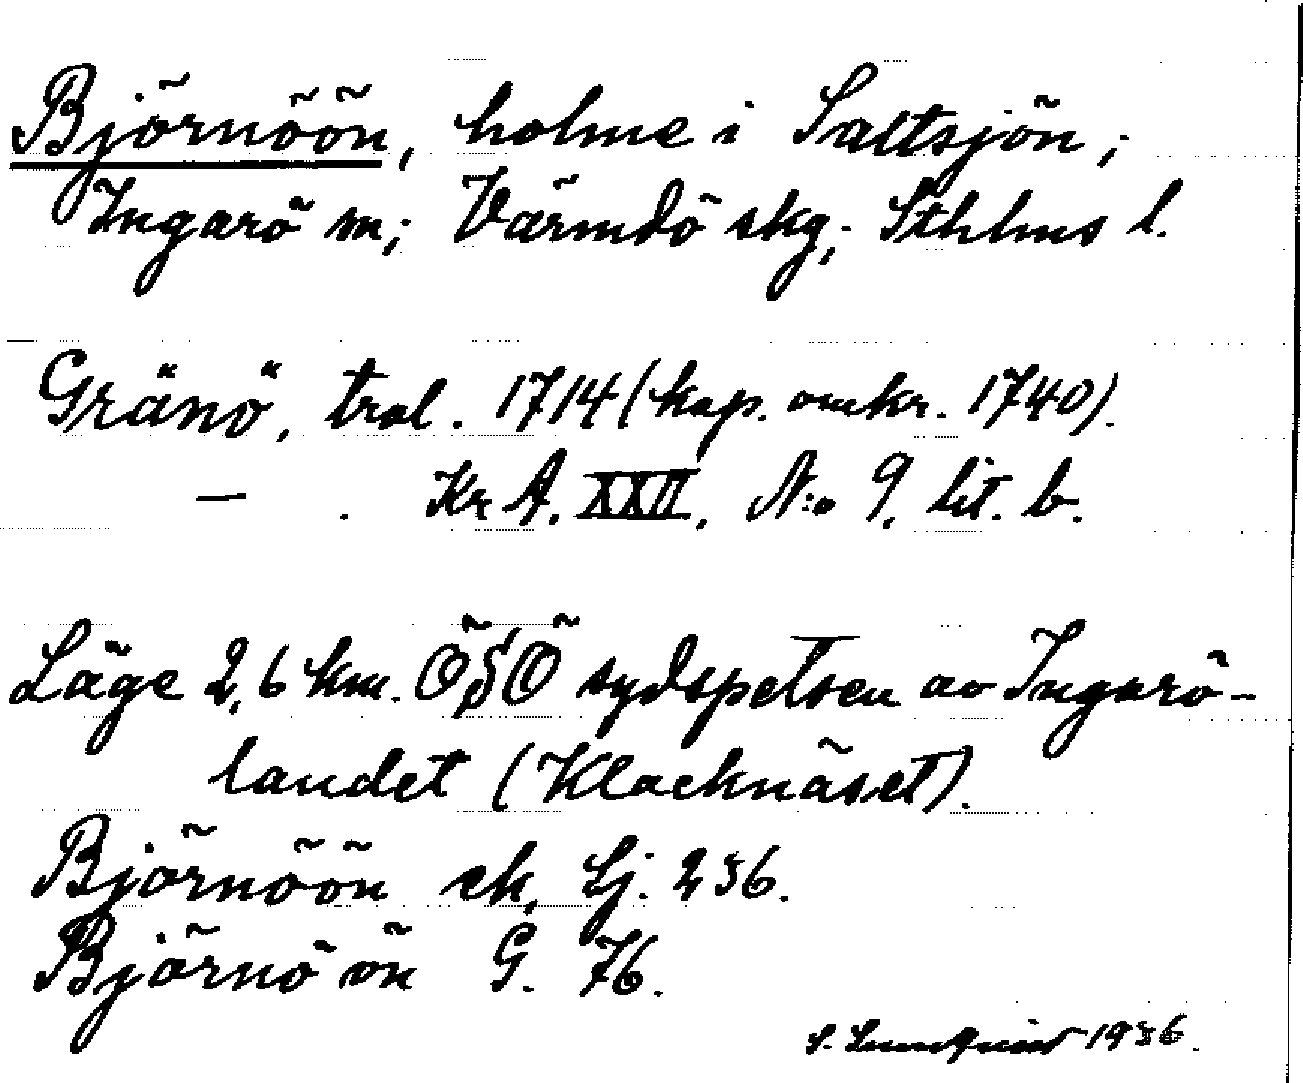 Björnöön, holme i Saltsjön;
Ingarö sn; Värmdö skg; Sthlms l.
Gränö, tral. 1714 (kop. omkr. 1740).
— . Kr A. XXII. N:o 9. lit. b.
Läge 2,6 km. ÖSÖ sydspetsen av Ingarö-
landet (Klacknäset).
Björnöön ek. Sj. 236.
Björnöön G. 76.
S. Lundqvist 1936.